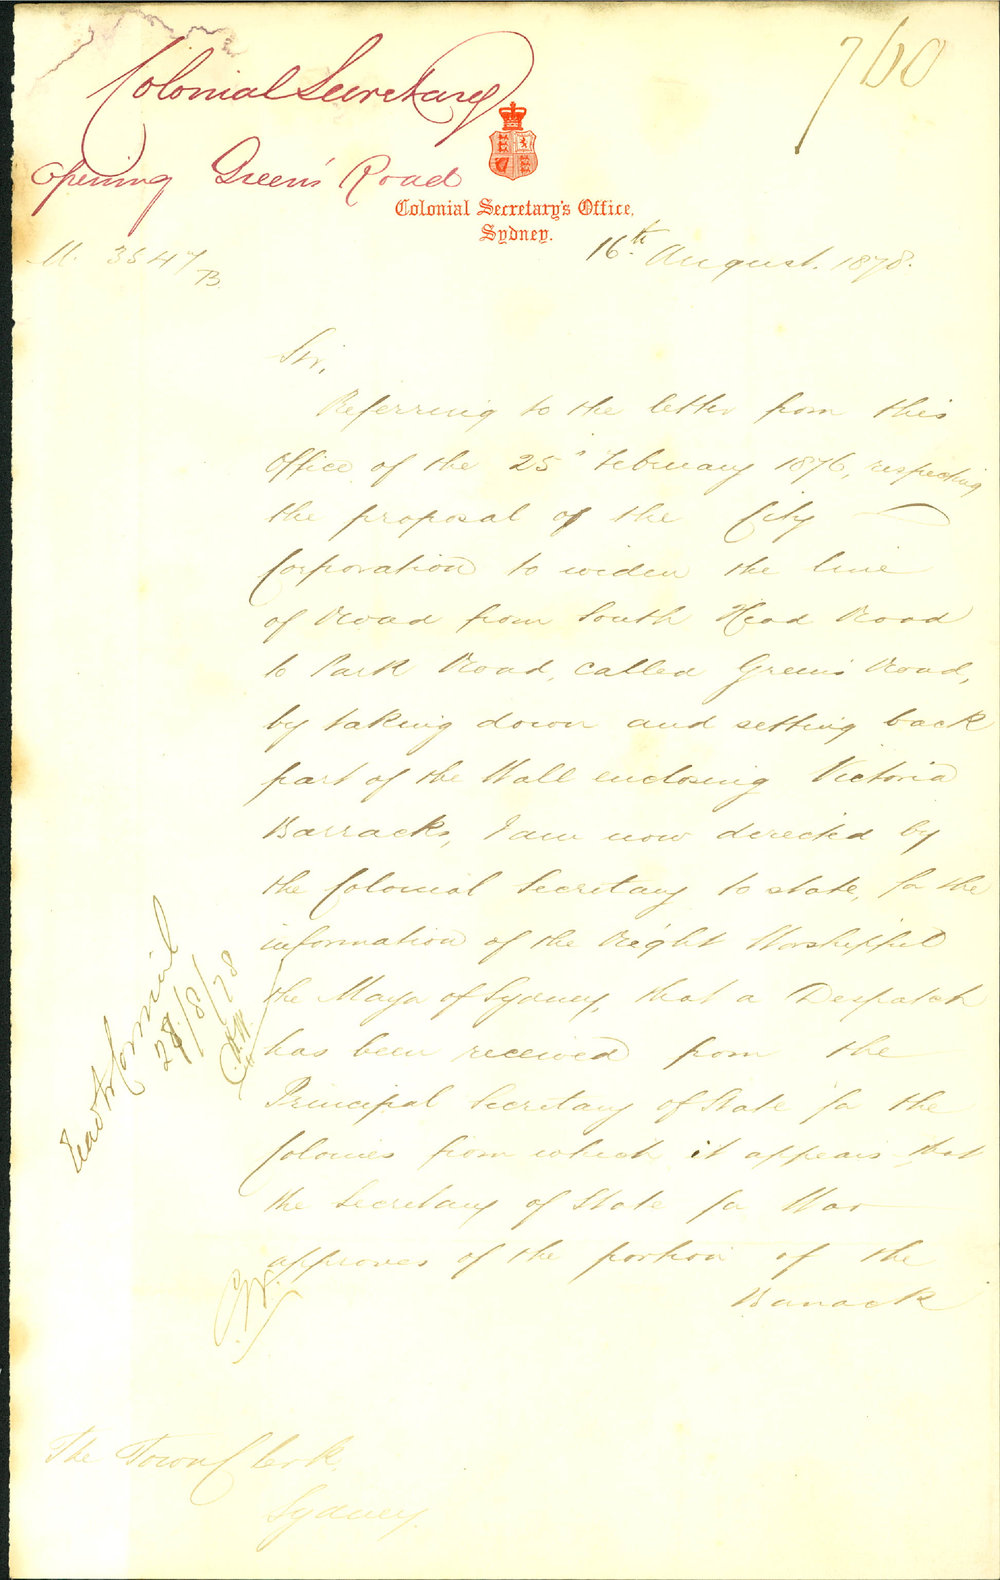 760
Colonial Secretary
opening Green's Road
Colonial Secretary's Office,
Sydney.
16th August. 1878.
3547
B.
Sir,
Referring to the letter from this
Office of the 25" February 1876, respecting
the proposal of the City
Corporation to widen the line
of Road from South Head Road
to Park Road, called Green's Road,
by taking down and setting back
part of the Wall enclosing Victoria
Barracks, I am now directed by
the Colonial Secretary to state, for the
information of the Right Worshipful
the Mayor of Sydney, that a Despatch
has been received from the
Principal Secretary of State for the
Colonies from which it appears that
the Secretary of State for War
approves of the portion of the
Barrack
28/8/78
The Town Clerk.
Sydney.